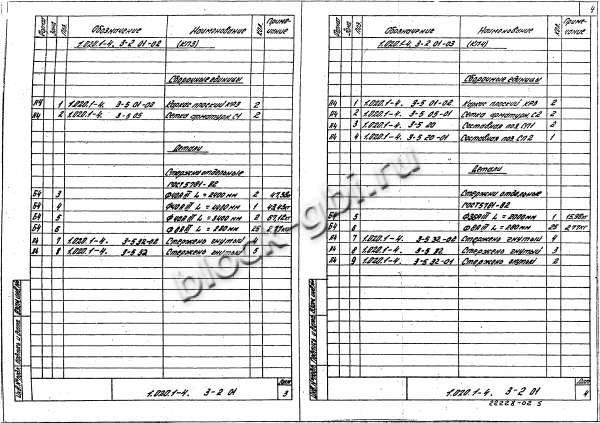 4
Формат Зона Поз. Обозначение Наименование Кол. Примечание
1.020.1-4. 3-2 01-02 (КП3)
Сборочные единицы
А4 1 1.020.1-4. 3-5 01-02 Каркас плоский КР3 2
А4 2 1.020.1-4. 3-5 05 Сетка арматурн. С1 2
Детали
Стержни отдельные
ГОСТ 5781-82
Б4 3 2
Б4 4 1
Б4 5 2
Б4 6 L = 280 мм 25
А4 7 1.020.1-4. 3-5 32-02 Стержень гнутый 4
А4 8 1.020.1-4. 3-5 32 Стержень гнутый 3
1.020.1-4. 3-2 01
Лист
3
Формат Зона Поз. Обозначение Наименование Кол. Примечание
1.020.1-4. 3-2 01-03 (КП4)
Сборочные единицы
А4 1 1.020.1-4. 3-5 01-02 Каркас плоский КР3 2
А4 2 1.020.1-4. 3-5 05-01 Сетка арматурн. С2 2
А4 3 1.020.1-4. 3-5 20 Составная поз. СП1
А4 4 1.020.1-4. 3-5 20-01 Составная поз. СП2 1
Детали
Стержни отдельные
ГОСТ 5781-82
Б4 5 L = 2000 мм 1
Б4 6 L = 280 мм 25
А4 7 1.020.1-4. 3-5 32-02 Стержень гнутый 4
А4 8 1.020.1-4. 3-5 32 Стержень гнутый 3
А4 9 1.020.1-4. 3-5 32-01 Стержень гнутый 2
1.020.1-4. 3-2 01
Лист
4
22228-02 5
block-gbi.ru